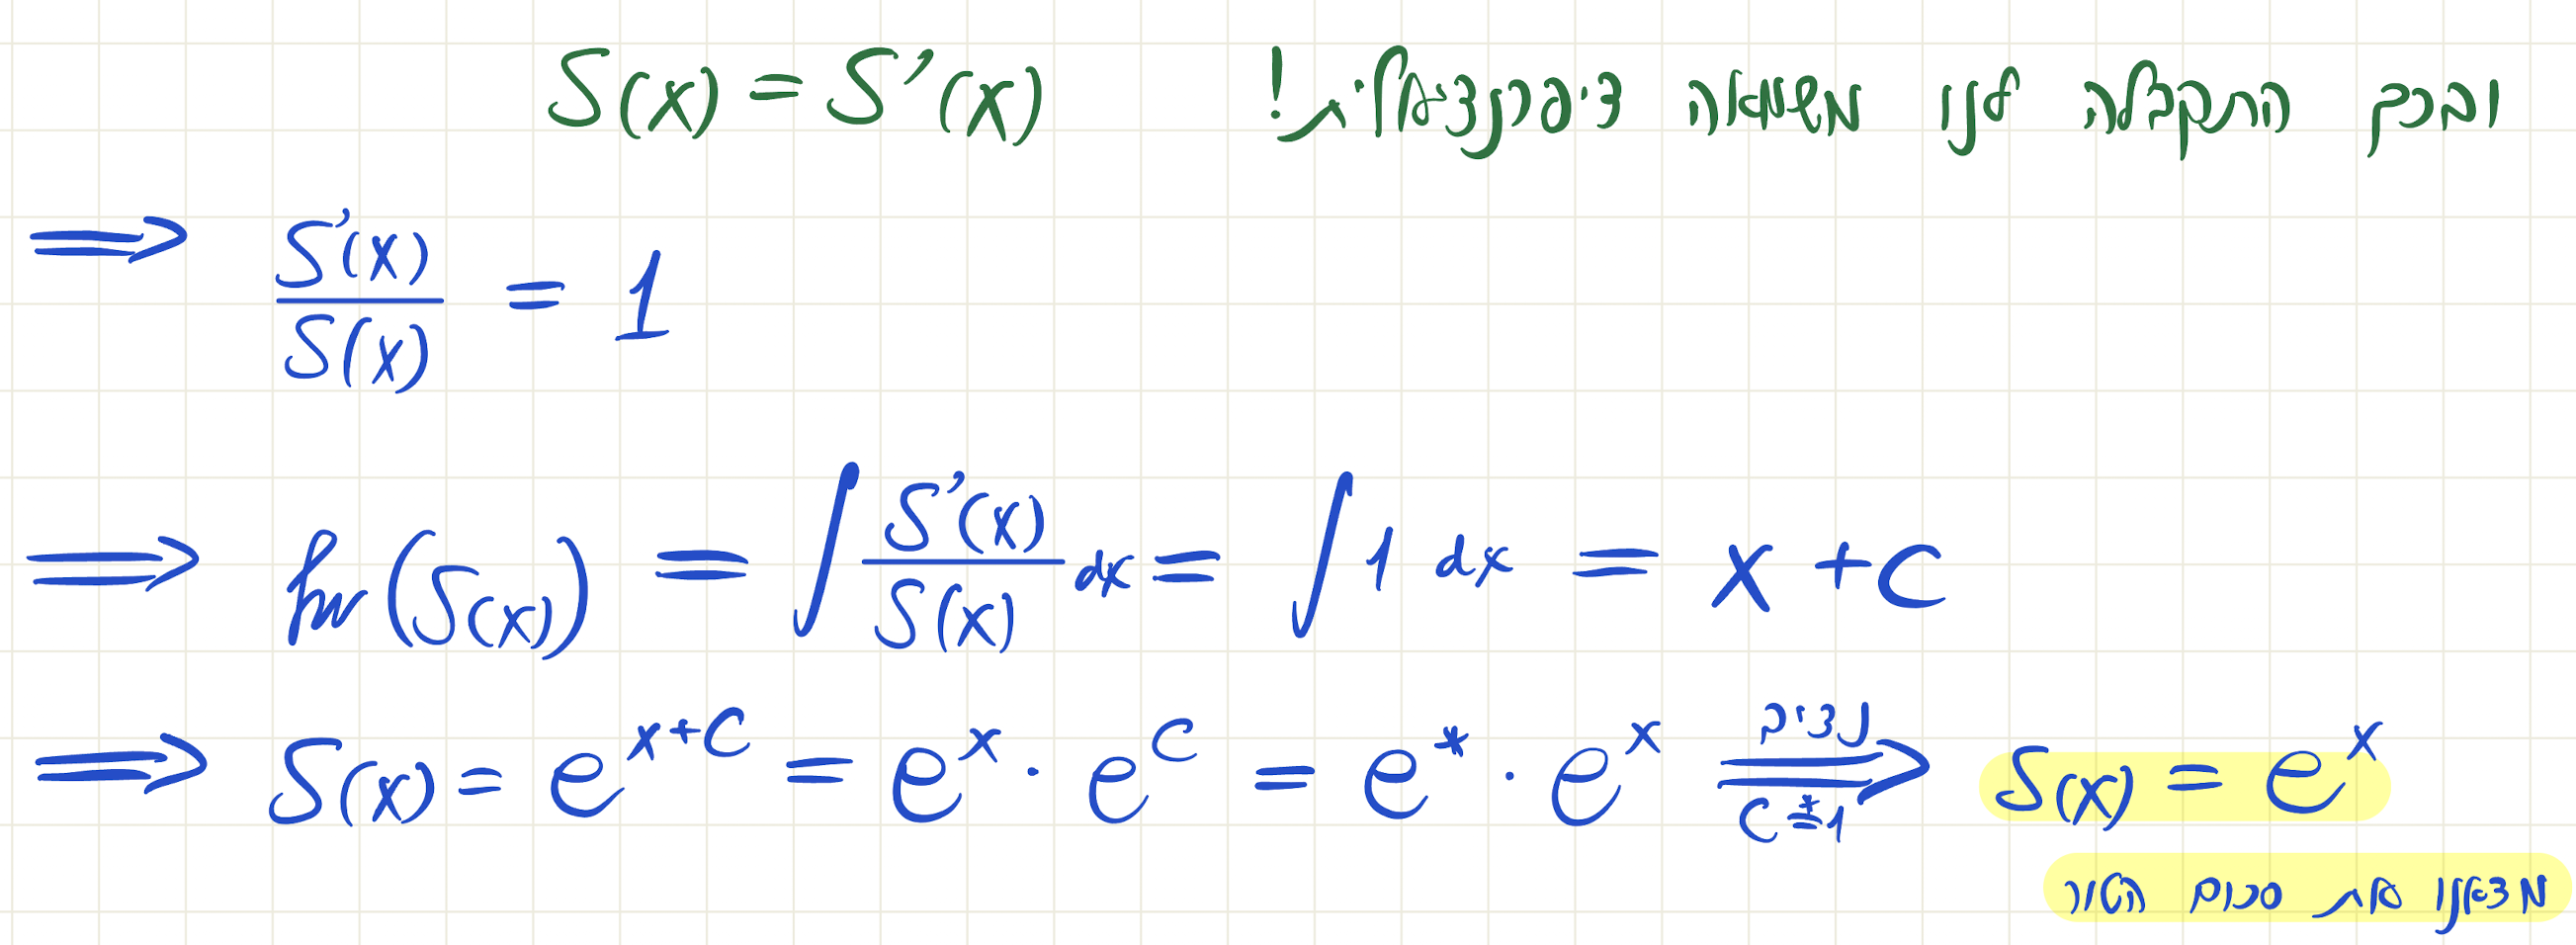 ובכך התקבלה לנו משוואה דיפרנציאלית! S(x) = S'(x)
⟹ S'(x)/S(x) = 1
⟹ ln(S(x)) = ∫ S'(x)/S(x) dx = ∫ 1 dx = x + C
⟹ S(x) = e^(x+C) = e^x · e^C = e^* · e^x ⟹ נציב C* = 1 S(x) = e^x
מצאנו את סכום הטור